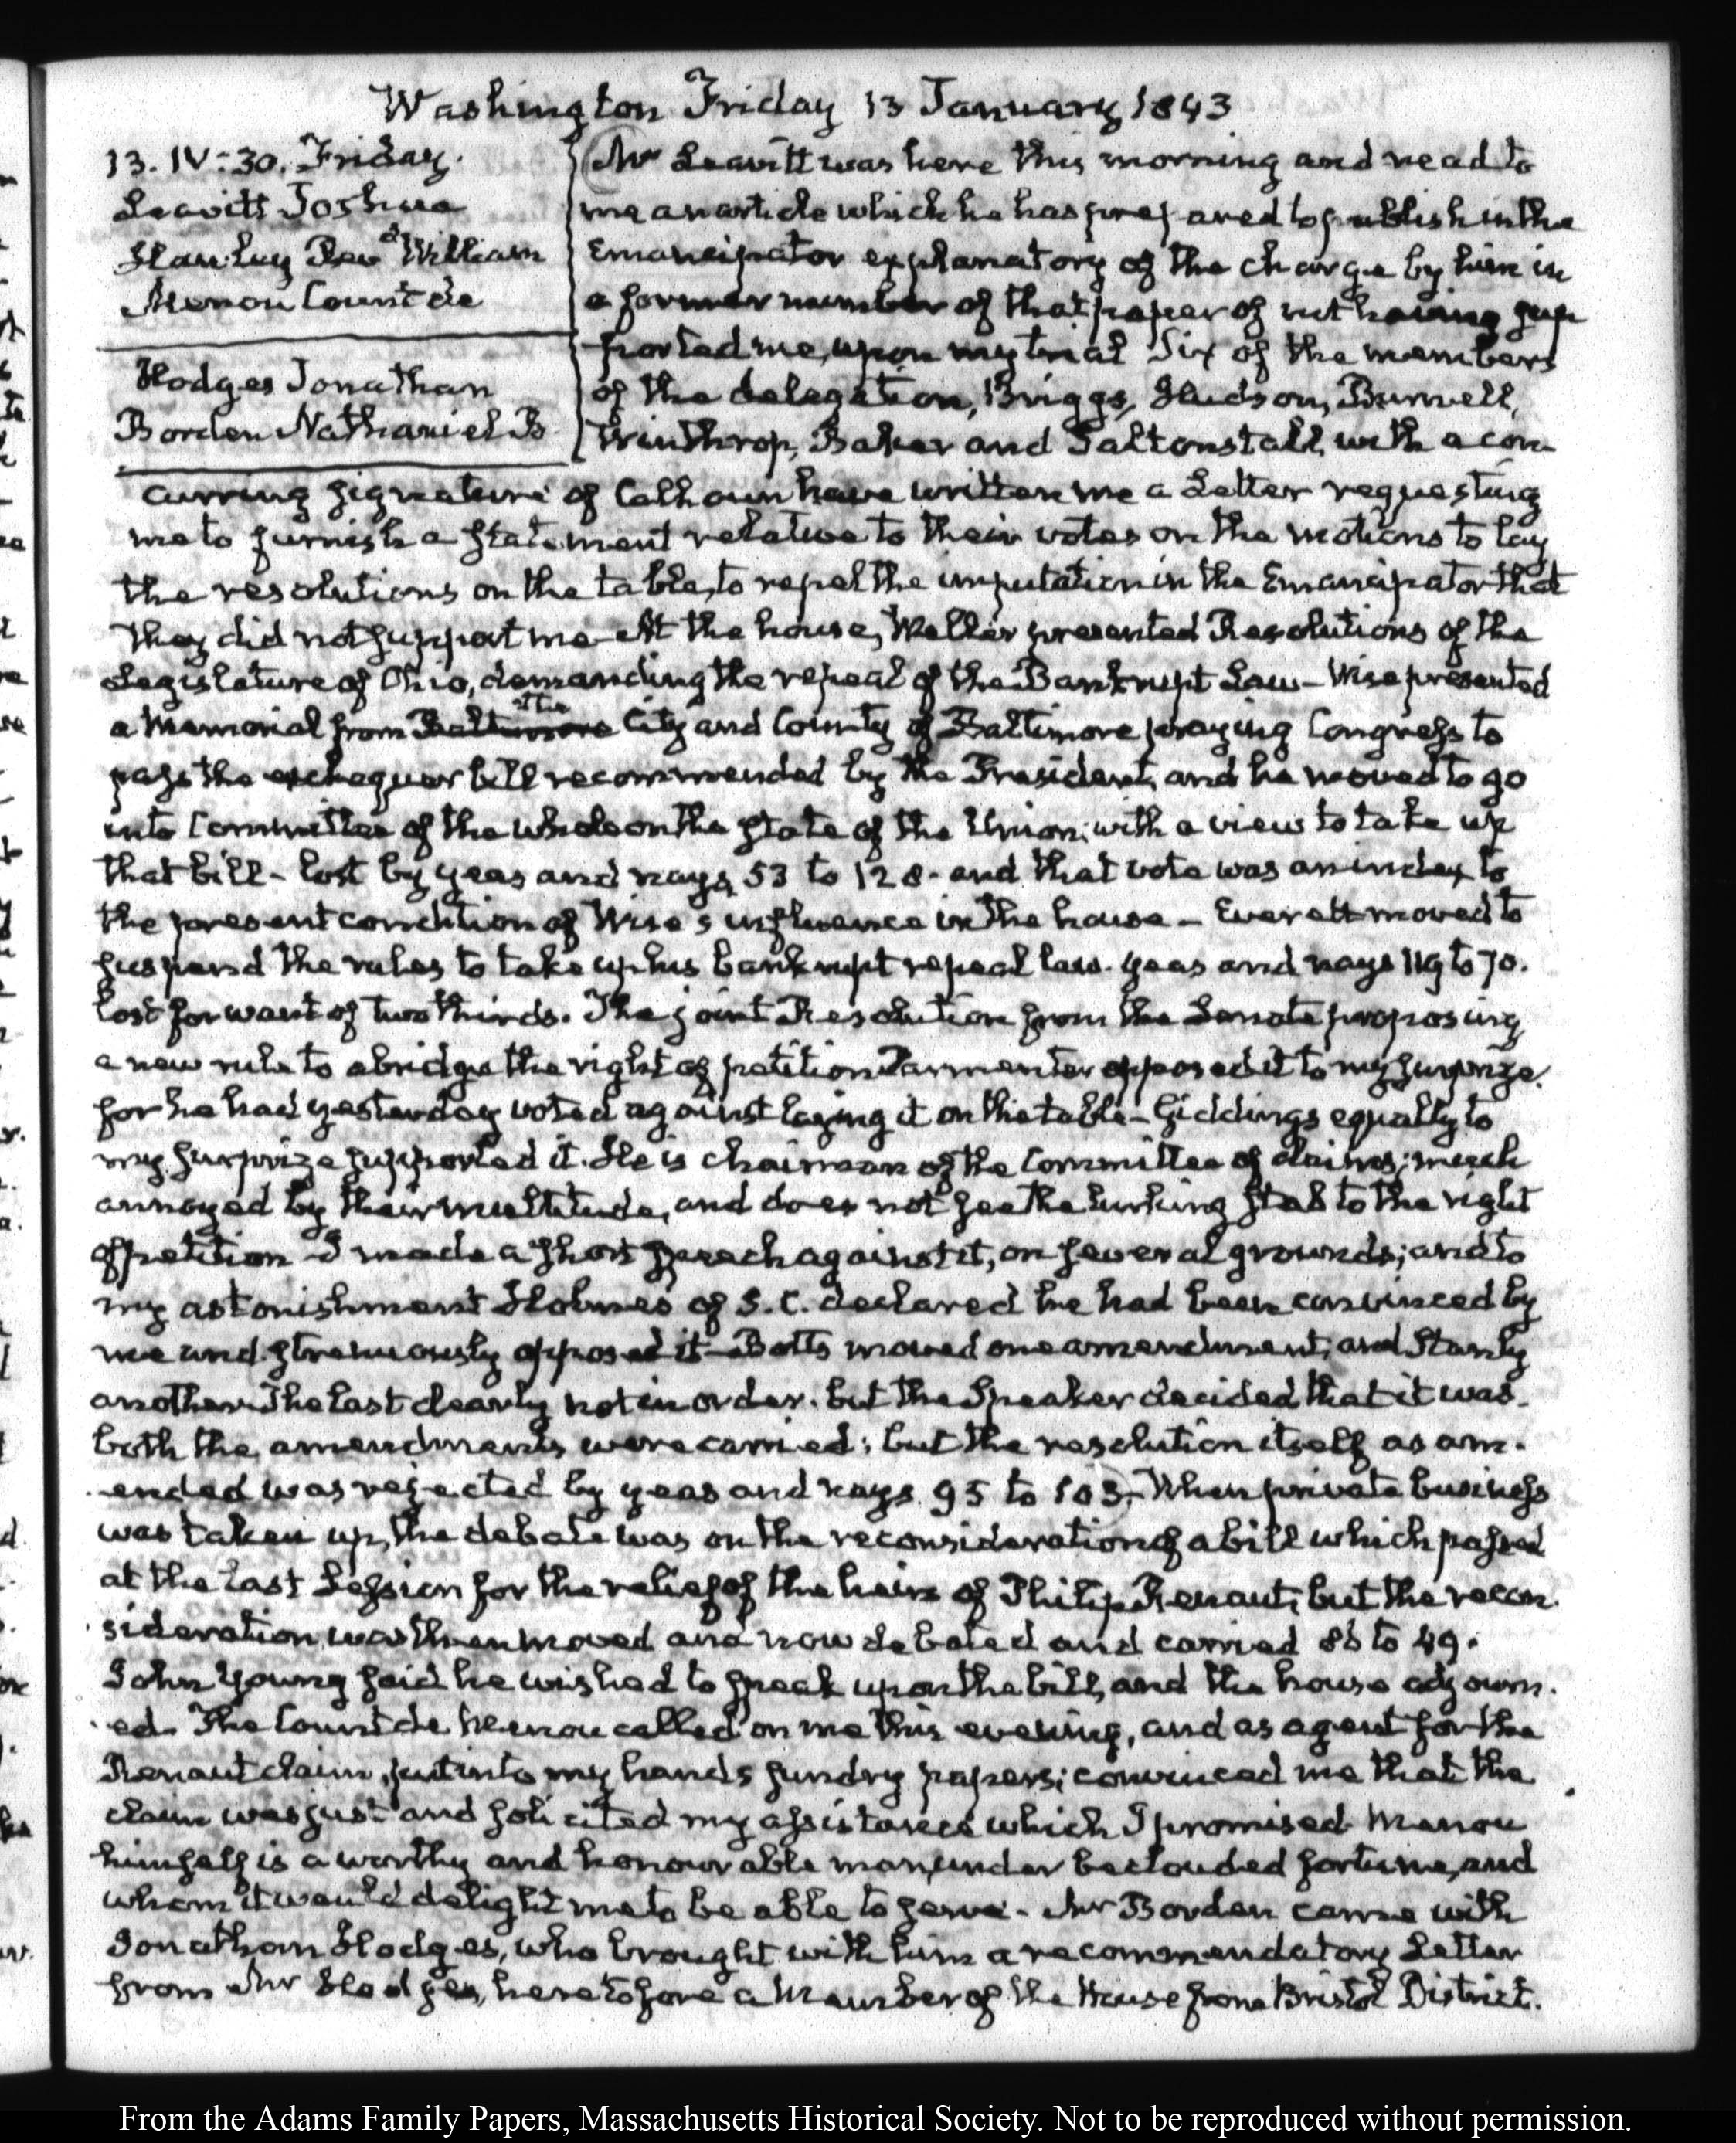 Washington Friday 13 January 1843
13. IV:30. Friday.
Leavitt Joshua
Hawley Revd William
Menou Count de
Hodges Jonathan
Borden Nathaniel B
Mr Leavitt was here this morning and read to
me an article which he has prepared to publish in the
Emancipator explanatory of the charge by him in
a former number of that paper of not having sup
ported me, upon my trial Six of the members
of the delegation, Briggs, Hudson, Burnell,
Winthrop, Baker and Saltonstall, with a con
curring signature of Calhoun have written me a Letter requesting
me to furnish a statement relative to their votes on the motions to lay
the resolutions on the table, to repel the imputation in the Emancipator that
they did not support me. At the house, Weller presented Resolutions of the
Legislature of Ohio, demanding the repeal of the Bankrupt Law – Wise presented
a Memorial from Baltimore the City and County of Baltimore praying Congress to
pass the exchequer bill recommended by the President, and he moved to go
into Committee of the whole on the state of the Union, with a view to take up
that bill – lost by yeas and nays 53 to 128. and that vote was an index to
the present condition of Wise's influence in the house – Everett moved to
suspend the rules to take up his bankrupt repeal law. yeas and nays 119 to 70.
lost for want of two thirds. The joint Resolution from the Senate proposing
a new rule to abridge the right of petition Parmenter opposed it to my surprize.
for he had yesterday voted against laying it on the table – Giddings equally to
my surprize supported it. He is chairman of the Committee of claims; much
annoyed by their multitude, and does not see the lurking stab to the right
of petition I made a short speech against it, on several grounds; and to
my astonishment Holmes of S. C. declared he had been convinced by
me and strenuously opposed it – Botts moved one amendment, and Stanly
another. The last clearly not in order. but the Speaker decided that it was.
both the amendments were carried: but the resolution itself as am.
ended was rejected by yeas and nays 95 to 103. When private business
was taken up, the debate was on the reconsideration of a bill which passed
at the last Session for the relief of the heirs of Philip Renaut, but the recon.
sideration was then moved and now debated and carried 86 to 49.
John Young said he wished to speak upon the bill, and the house adjourn.
ed. The Count de Menou called on me this evening, and as agent for the
Renaut claim, put into my hands sundry papers; convinced me that the
claim was just and solicited my assistance which I promised. Menou
himself is a worthy and honourable man, under beclouded fortune, and
whom it would delight me to be able to serve – Mr Borden came with
Jonathan Hodges, who brought with him a recommendatory Letter
from Mr Hodges, heretofore a Member of the House from Bristol District.
From the Adams Family Papers, Massachusetts Historical Society. Not to be reproduced without permission.